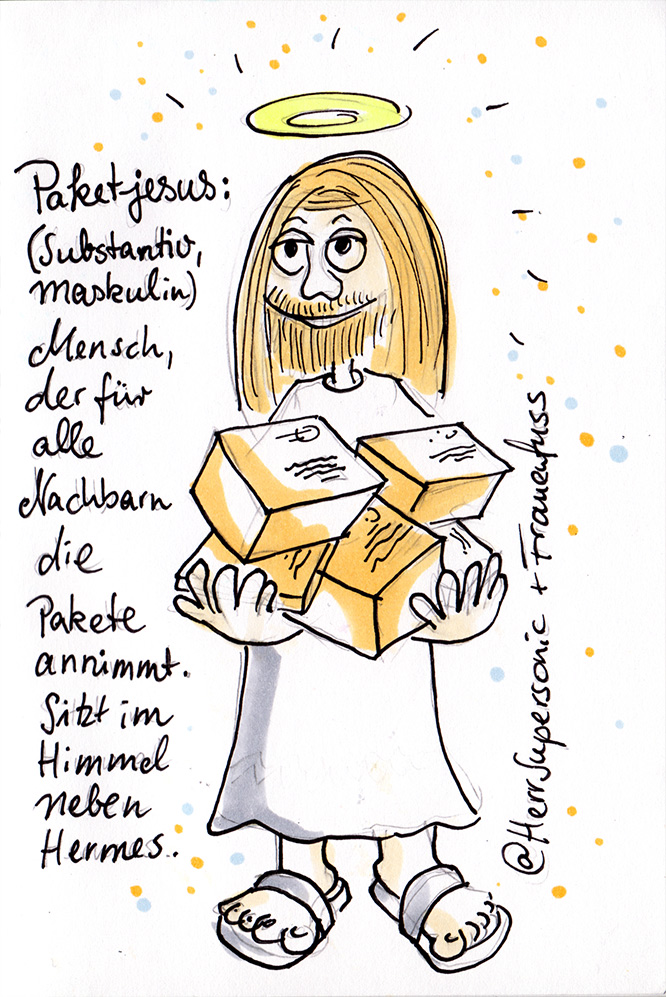 Paketjesus:
(Substantiv,
maskulin)
Mensch,
der für
alle
Nachbarn
die
Pakete
annimmt.
Sitzt im
Himmel
neben
Hermes.
@HerrSupersonic + Frauenfuss